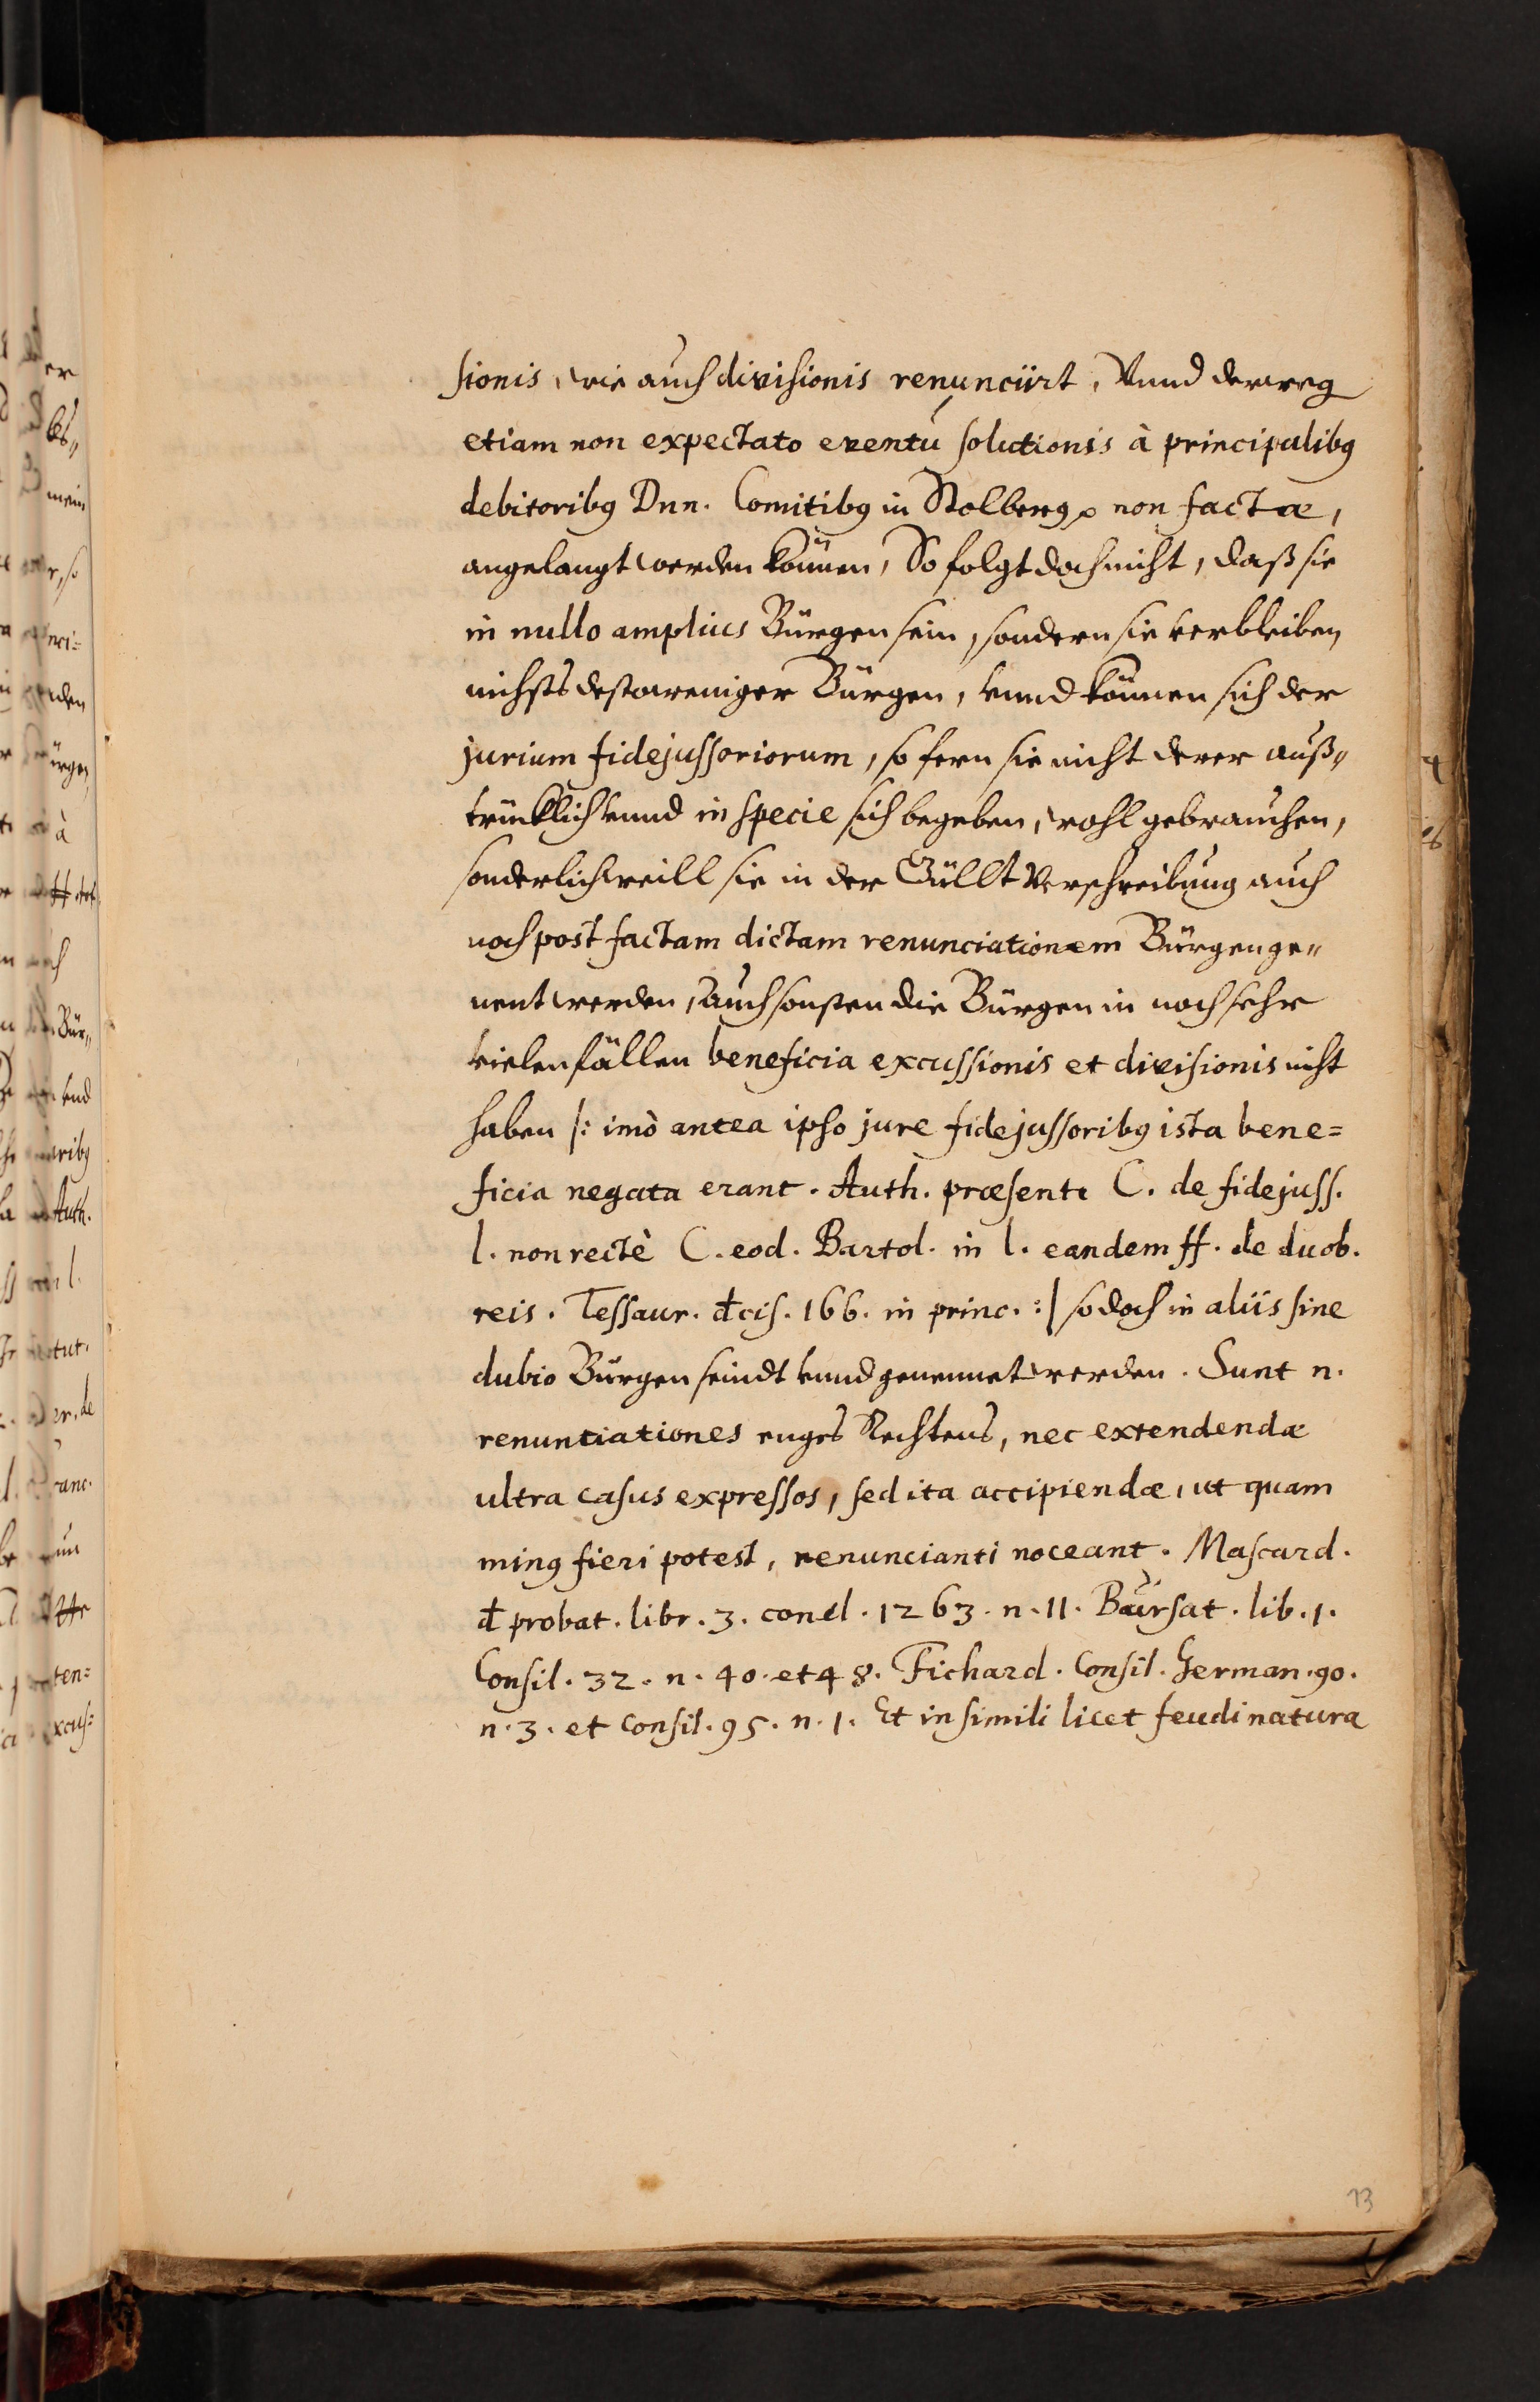 sionis, wie auch divisionis renunciirt, Vnnd derweg
etiam non expectato eventu solutionis à principalibꝫ
debitoribꝫ Dnn. Comitibꝫ in Stolberg non factae,
angelangt werden können, So folgt doch nicht, daß sie
in nullo amplius Bürgen sein, sondern sie verbleiben
nichsts destoweniger Bürgen, vnnd können sich der
jurium fidejussoriorum, so fern sie nicht derer auß„
trücklich vnnd in specie sich begeben, wohl gebrauchen,
sonderlich weill sie in der Güllt Verschreibung auch
noch post factam dictam renunciationem Bürgen ge„
nent werden, Auch sonsten die Bürgen in noch sehr
vielen fällen beneficia excussionis et divisionis nicht
haben /: imò antea ipso jure fidejussoribꝫ ista bene=
ficia negata erant. Auth. praesente C. de fidejuss.
l. non rectè C. eod. Bartol. in l. eandem ff. de duob.
reis. Tessaur. đcis. 166. in princ. :/ so doch in aliis sine
dubio Bürgen seindt vnnd genennet werden. Sunt n.
renuntiationes enges Rechtens, nec extendendae
ultra casus expressos, sed ita accipiendae, ut quam
minꝫ fieri potest, renuncianti noceant. Mascard.
đ probat. libr. 3. concl. 1263. n. 11. Bursat. lib. 1.
Consil. 32. n. 40. et 48. Fichard. Consil. German. 90.
n. 3. et Consil. 95. n. 1. Et in simili licet feudi natura
13